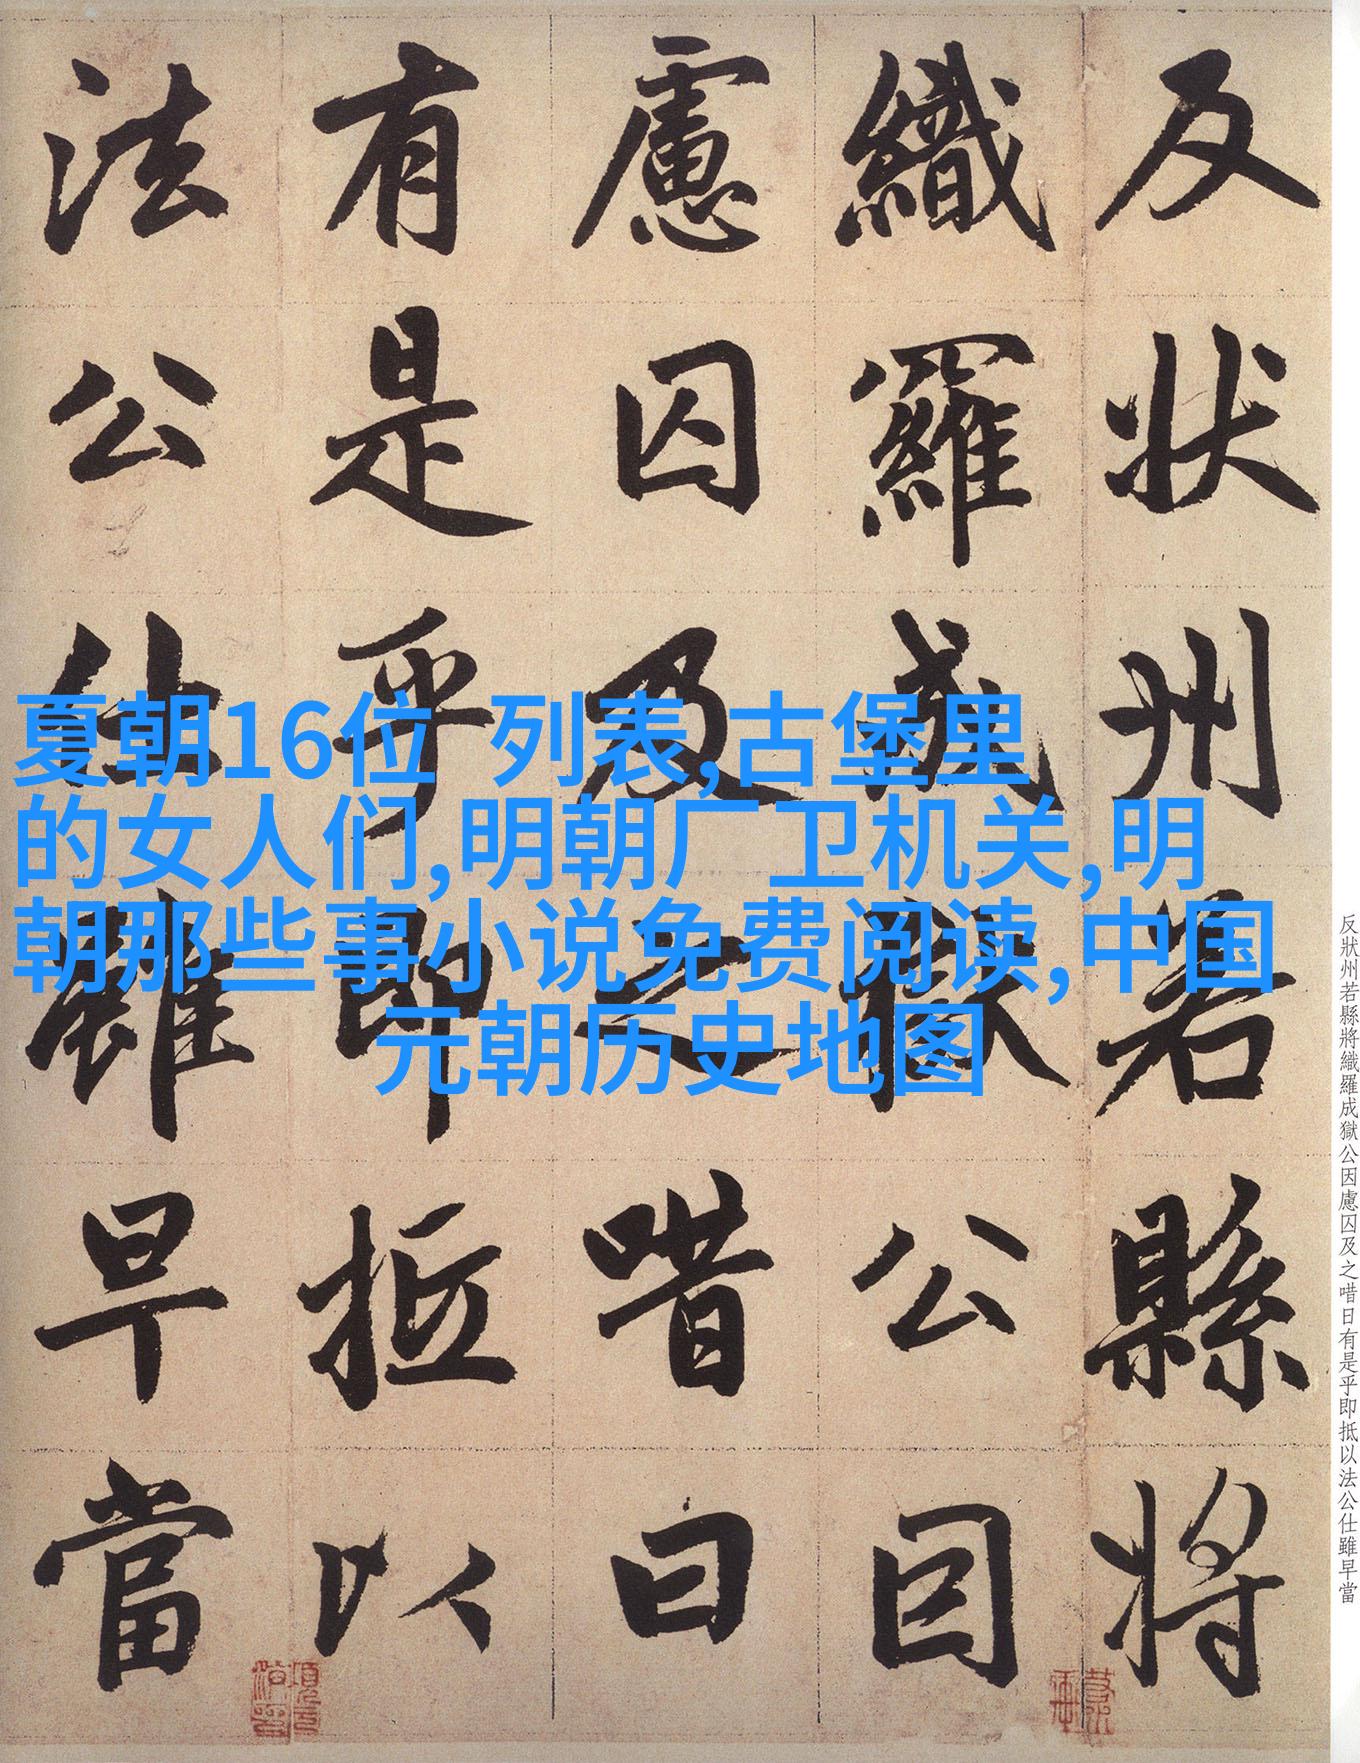 反狀州若縣將
織羅成獄公因
慮囚及之唶曰
有是乎即抵以
法公仕雖早當
夏朝16位 列表,古堡里
的女人们,明朝厂卫机关,明
朝那些事小说免费阅读,中国
元朝历史地图
反狀州若縣將織羅成獄公因慮囚及之唶日有是乎即抵以法公仕雖早當